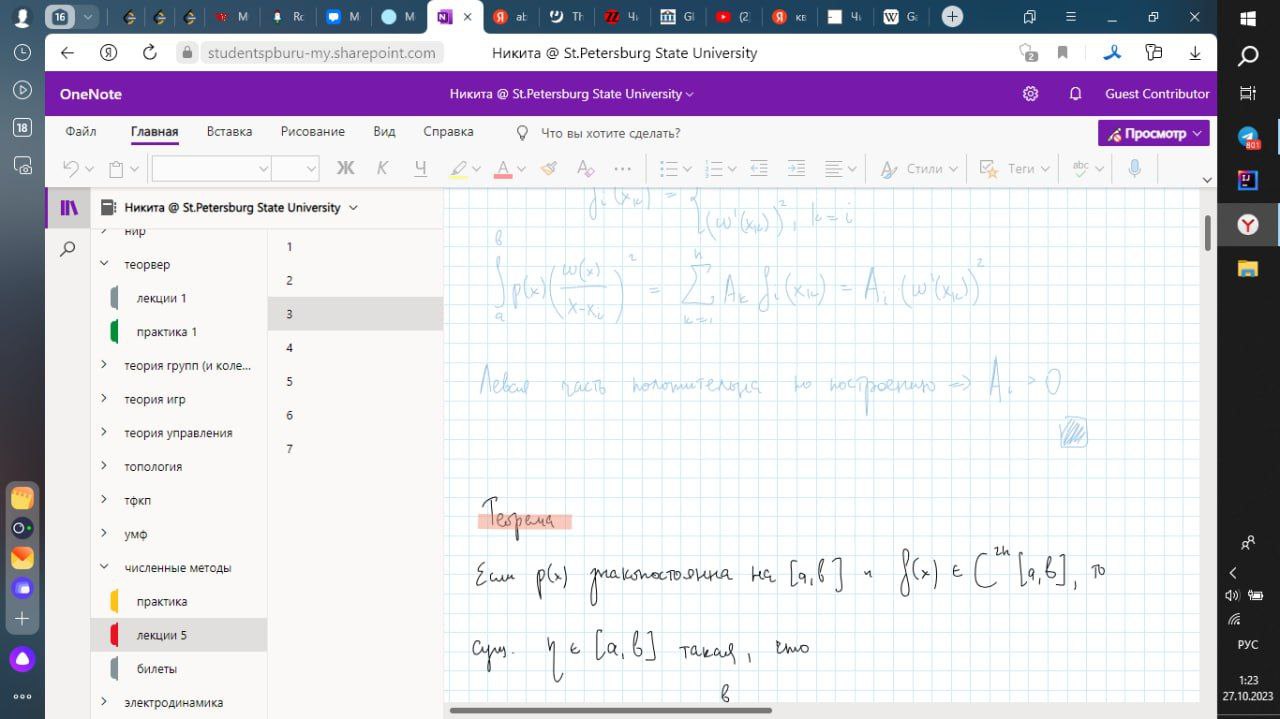 16
M
Rc
M
M
N
ab
Th
Чи
Gl
(2
кв
Чи
W
Gc
studentspburu-my.sharepoint.com
Никита @ St.Petersburg State University
2
OneNote
Никита @ St.Petersburg State University
Guest Contributor
Файл
Главная
Вставка
Рисование
Вид
Справка
Что вы хотите сделать?
Просмотр
Ж К Ч
A
...
Стили
Теги
abc
18
Никита @ St.Petersburg State University
нир
теорвер
лекции 1
практика 1
теория групп (и коле...
теория игр
теория управления
топология
тфкп
умф
численные методы
практика
лекции 5
билеты
электродинамика
1
2
3
4
5
6
7
f_i(x_k) = { (ω'(x_k))², k = i
∫_a^b p(x) (ω(x)/(x-x_i))² = Σ_{k=1}^n A_k f_i(x_k) = A_i · (ω'(x_k))²
Левая часть положительна по построению => A_i > 0
Теорема
Если p(x) знакопостоянна на [a, b] и f(x) ∈ C^{2n} [a, b], то
сущ. η ∈ [a, b] такая, что
b
801
РУС
1:23
27.10.2023